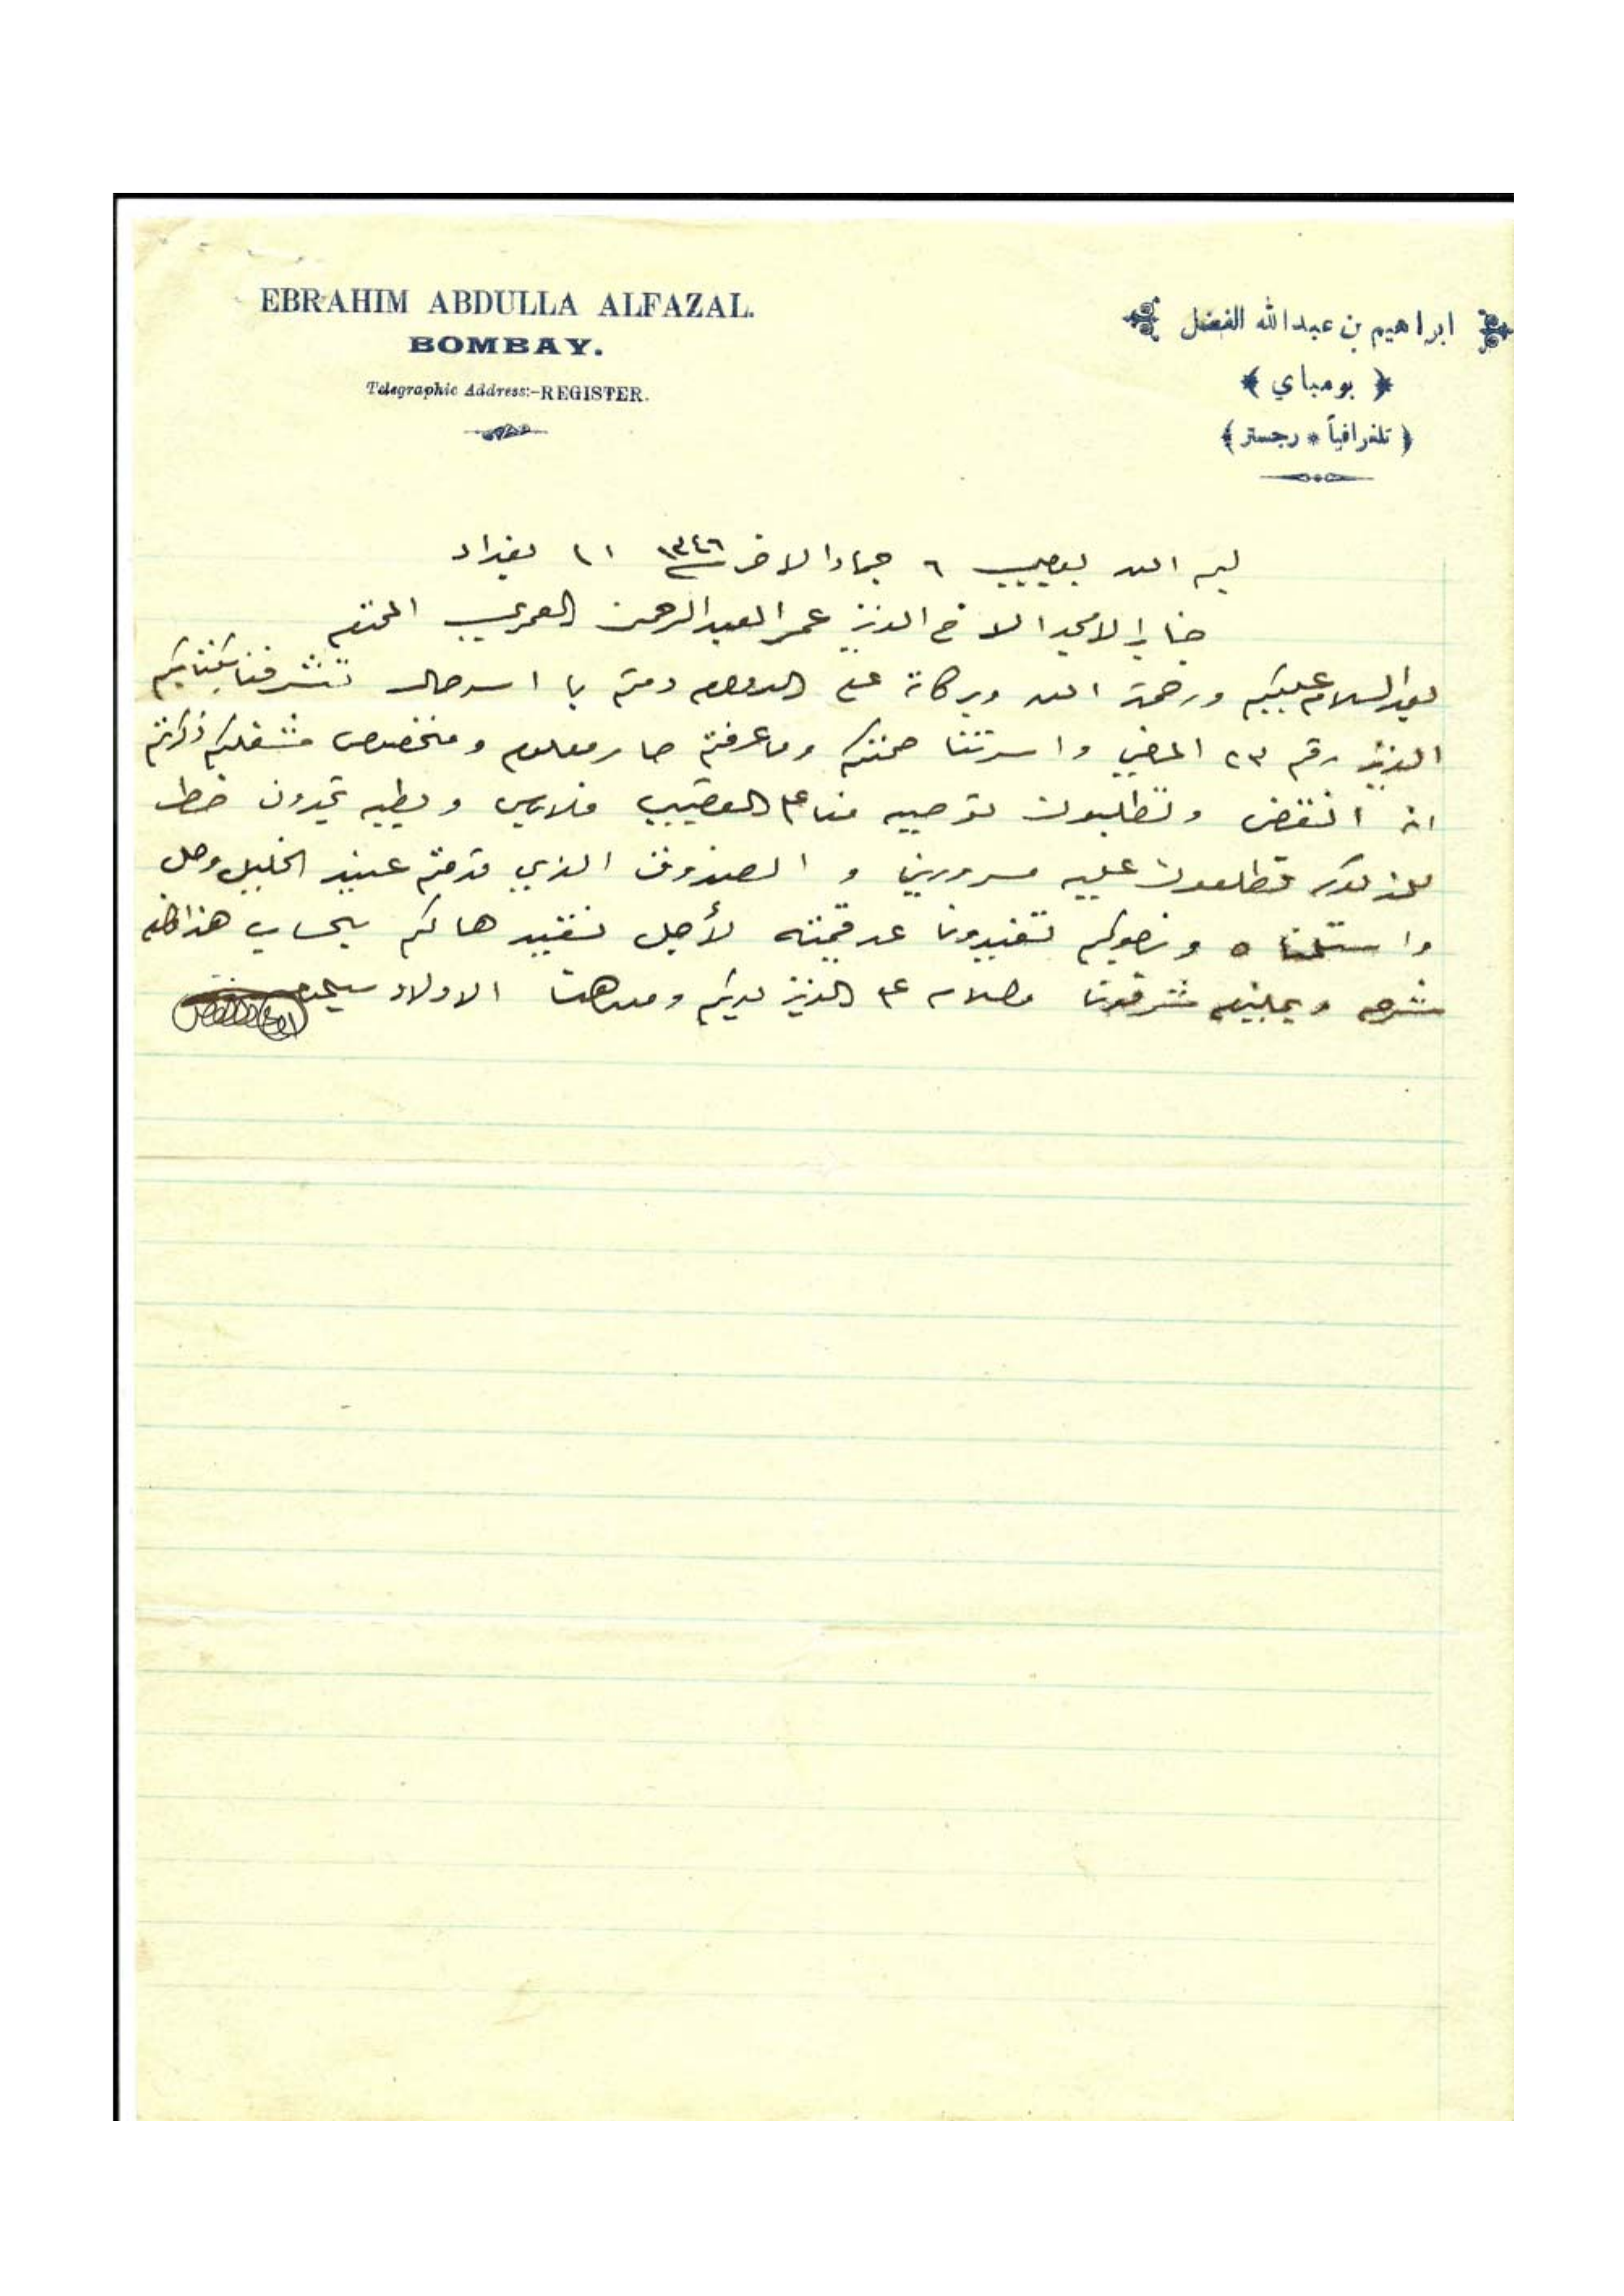 EBRAHIM ABDULLA ALFAZAL.
BOMBAY.
Telegraphic Address:-REGISTER.
ابراهيم بن عبدالله الفضل
﴿ بومباي ﴾
﴿ تلغرافياً * رجستر ﴾
٦ جمادالاخر ١٣٤٦ ١١ بغداد
جناب الامجد الاخ العزيز عمر العبدالرحمن العمري المحترم
بعد السلام عليكم ورحمة الله وبركاته على الدوام دمتم با اسر حال تشرفنا بكتابكم
العزيز رقم ٢٣ الماضي واسرتنا صحتكم وما عرفتم صار معلوم ومنخصوص مشغلكم ذكرتم
انه انتقض وتطلبون توصيه منا فلاباس وبطيه تجدون خط
للمذكور تطلعون عليه مسرورين و الصندوق الذي قدمتم عبيد الخليل وصل
واستلمناه ونرجوكم تفيدونا عد قيمته لأجل نقيدها لكم بحساب هذا
شرحه ويجلبنه شرفونا والسلام العزيز لديكم ومن هنا الاولاد